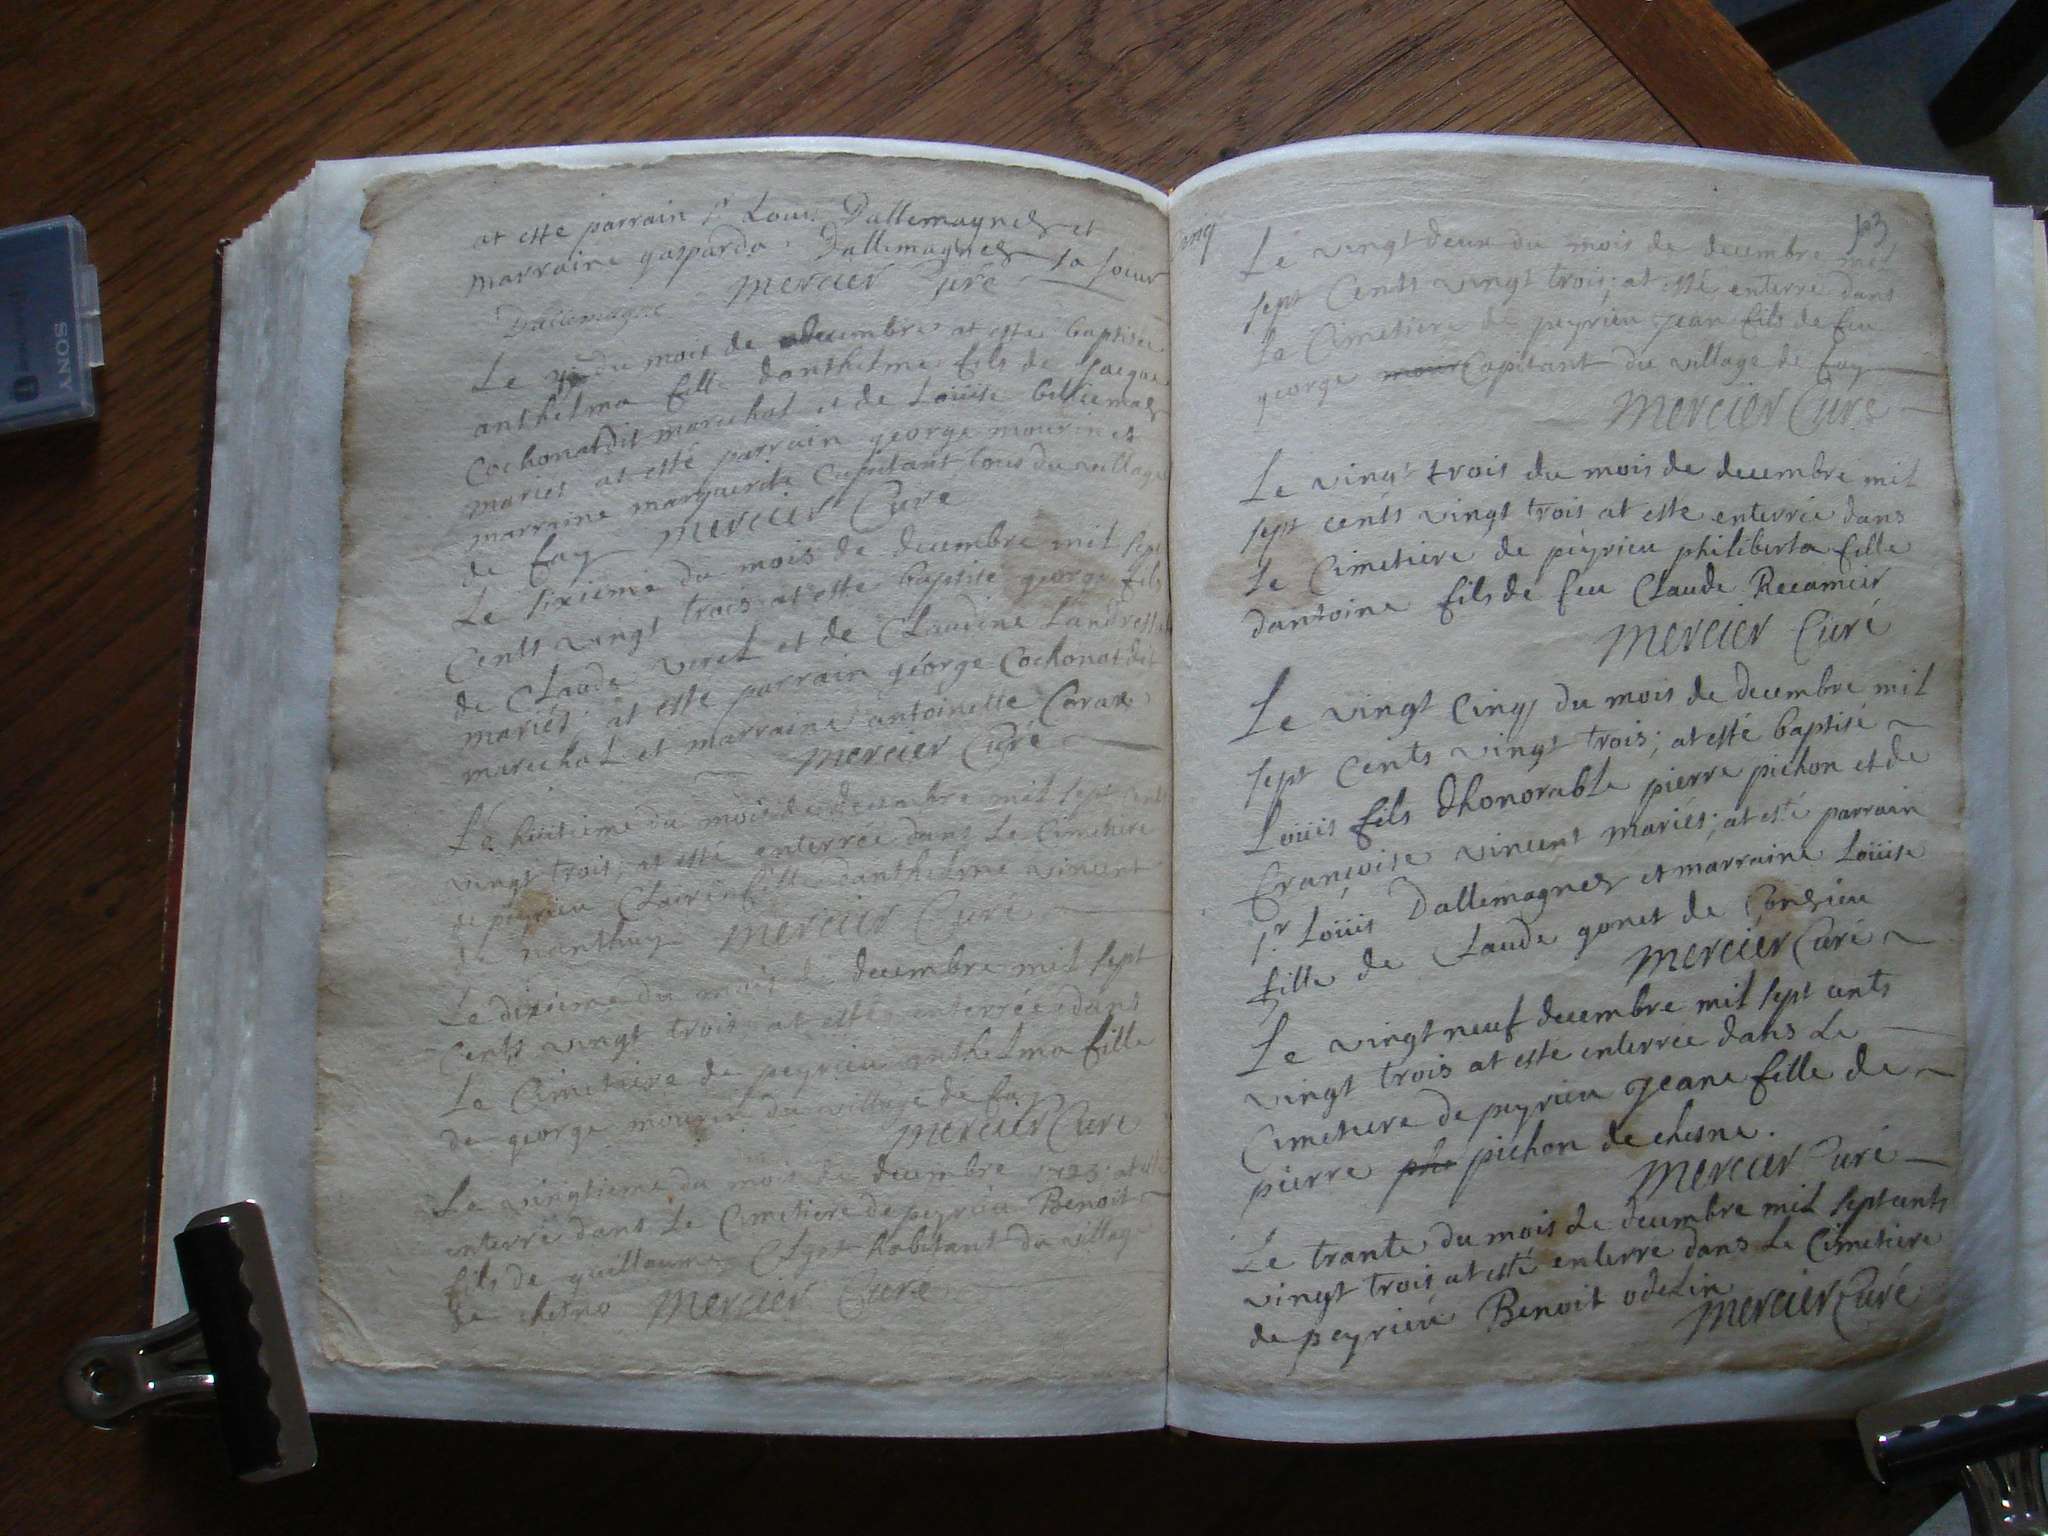 at esté parrain Sr Louis Dallemagnes et
marraine gasparda Dallemagnes sa soeur
Dallemagne Mercier Curé
Le du mois de decembre at esté baptisée
anthelma fille danthelme fils de Jacque
Cochonat dit marechal et de Loüise billiemas
mariés at esté parrain george mourin et
marraine marguerite Capitant tous du village
de fay Mercier Curé
Le sixieme du mois de decembre mil sept
Cents vingt trois at esté baptisé george fils
de Claude viret et de Claudine Landress
mariés; at esté parrain george Cochonat dit
marechal et marraine antoinette Carax
Mercier Curé
Le huitieme du mois de decembre mil sept cents
vingt trois; at esté enterrée dans Le Cimetiere
de peyrieu Clair fille danthelme vincent
de nanthuy Mercier Curé
Le dixieme du mois de decembre mil sept
Cents vingt trois at esté enterrée dans
Le Cimetaire de peyrieu anthelma fille
de george mourin du village de fay
Mercier Curé
Le vingtieme du mois de decembre 1723 at esté
enterré dans Le Cimetiere de peyrieu Benoit
fils de guillaume Clyet habitant du village
de chesne Mercier Curé
cinq
103
Le vingt deux du mois de decembre mil
sept Cents vingt trois; at esté enterre dans
Le Cimetiere de peyrieu jean fils de feu
george mour Capitant du village de fay
Mercier Curé
Le vingt trois du mois de decembre mil
sept cents vingt trois at esté enterrée dans
Le Cimetiere de péyrieu philiberta fille
dantoine fils de feu Claude Recamier
Mercier Curé
Le vingt Cinq du mois de decembre mil
sept Cents vingt trois; at esté baptisé
Loüis fils dhonorable pierre pichon et de
françoise vincent mariés; at esté parrain
Sr Loüis Dallemagnes et marraine Loüise
fille de Claude gonet de Consieu
Mercier Curé
Le vingt neuf decembre mil sept cents
vingt trois at esté enterrée dans Le
Cimetiere de peyrieu Jeane fille de
pierre pho pichon de chesne.
Mercier Curé
Le trante du mois de decembre mil sept cents
vingt trois at esté enterre dans Le Cimetiere
de peyrieu Benoit odelin
Mercier Curé
SONY